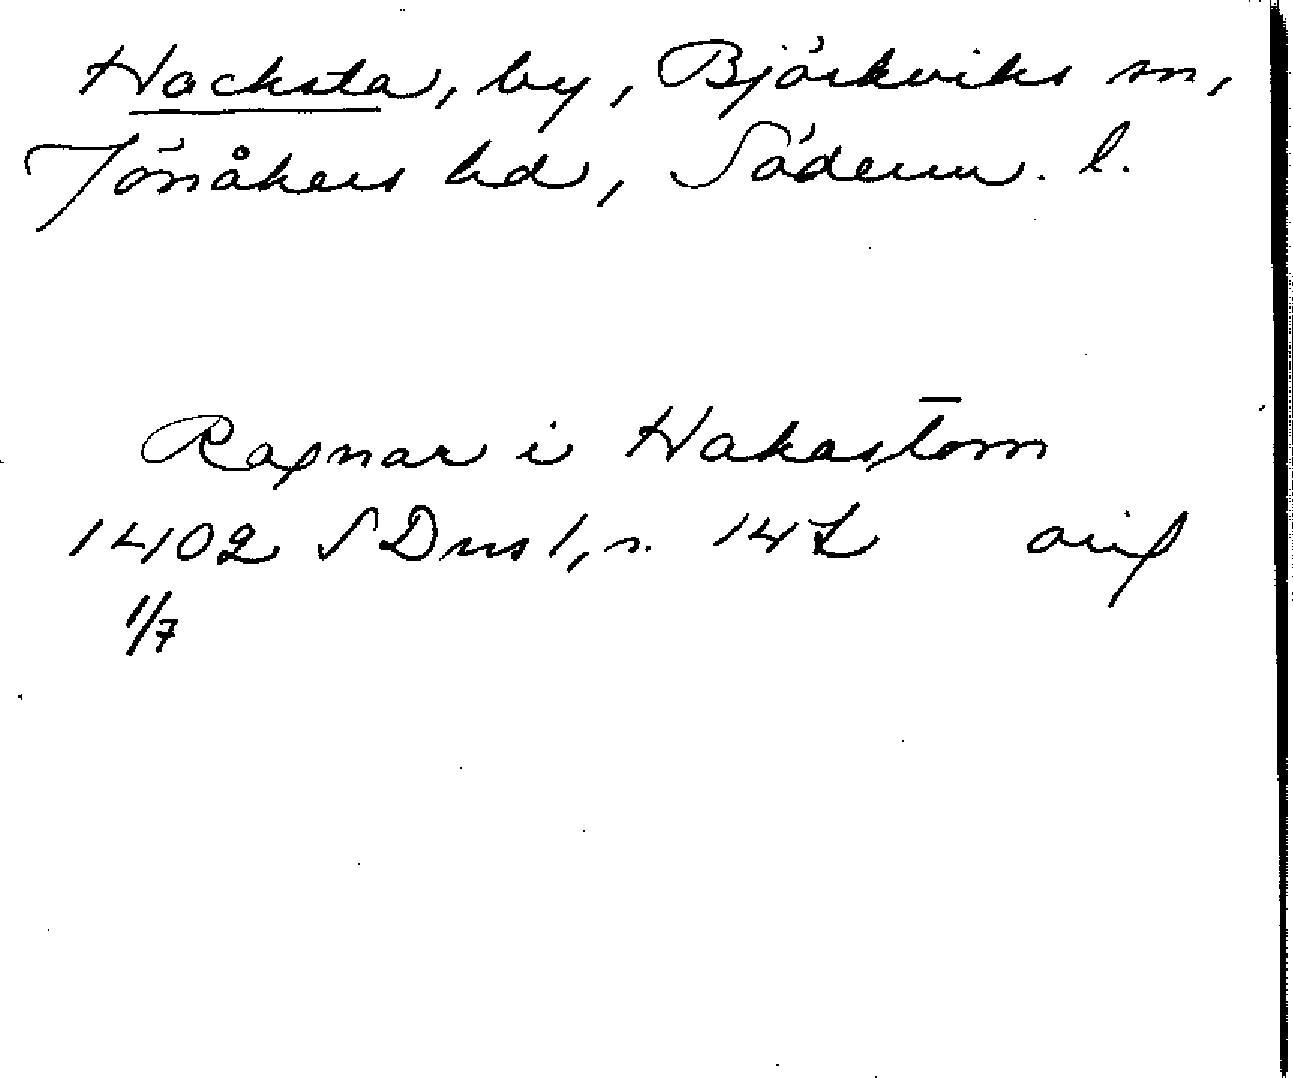 Hacksta, by, Björkviks sn,
Jönåkers hd, Söderm. l.
Ragnar i Hakastom
1402 SDns 1, s. 147 orig
1/7